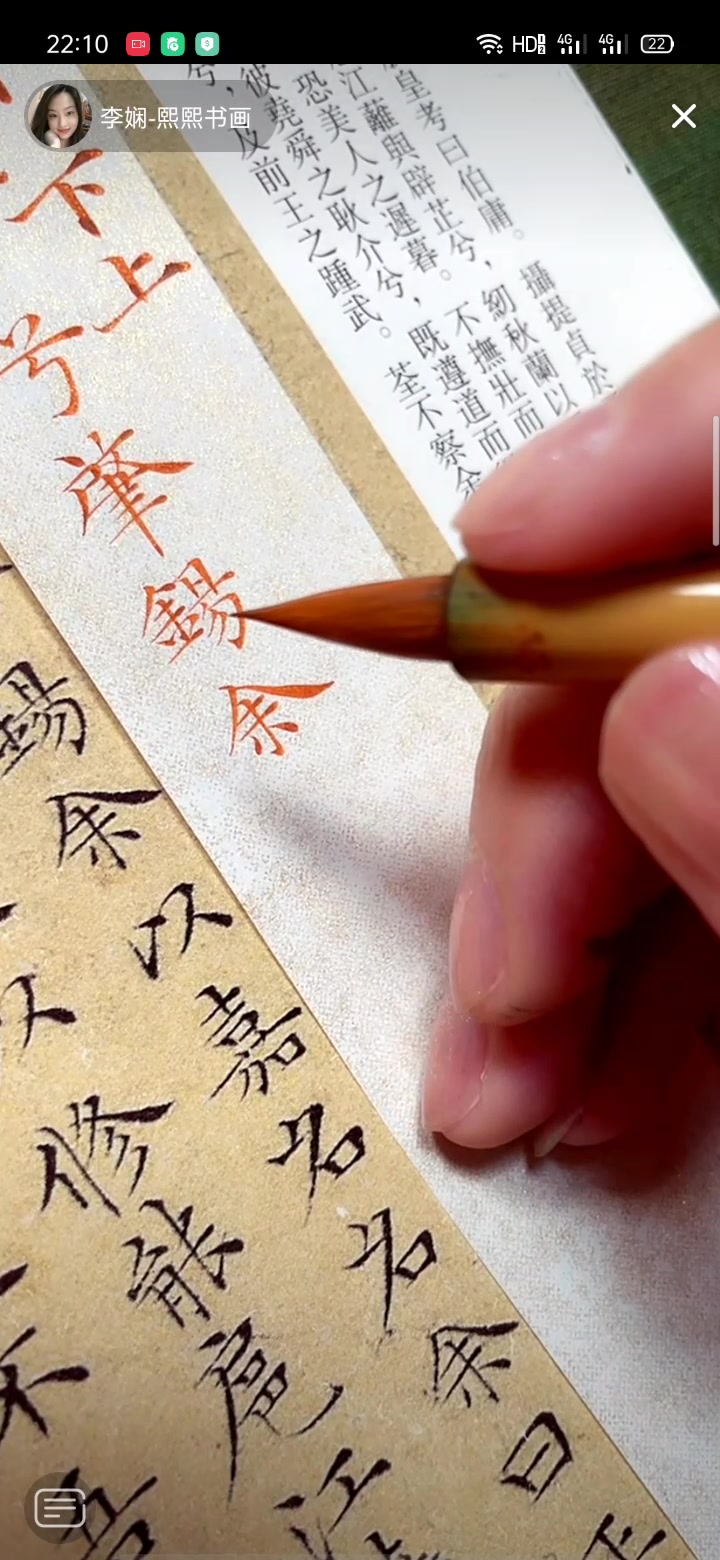 22:10
HD 4G 4G 22
李娴-熙熙书画
皇考曰伯庸。攝提貞於
江蘺與辟芷兮，紉秋蘭以
恐美人之遲暮。不撫壯而
彼堯舜之耿介兮，既遵道而
及前王之踵武。荃不察余
下上
兮肇錫余
錫余以嘉名名余曰
又修能扈江